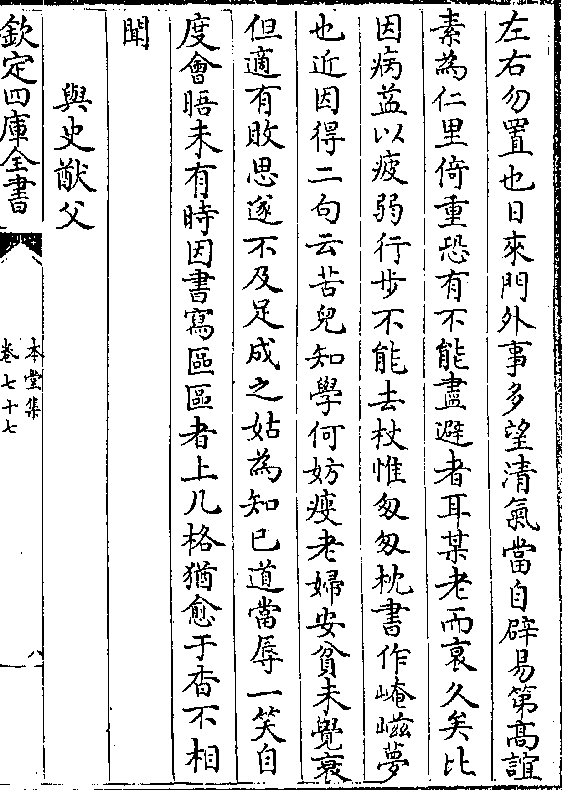 左右勿置也日來門外事多望清氣當自辟易第髙誼
素為仁里倚重恐有不能盡避者耳某老而衰久矣比
因病益以疲弱行步不能去杖惟匆匆枕書作崦嵫夢
也近因得二句云苦兒知學何妨瘦老婦安貧未覺衰
但適有敗思遂不及足成之姑為知已道當辱一笑自
度會晤未有時因書寫區區者上几格猶愈于杳不相
聞
與史猷父
欽定四庫全書
本堂集
卷七十七
八